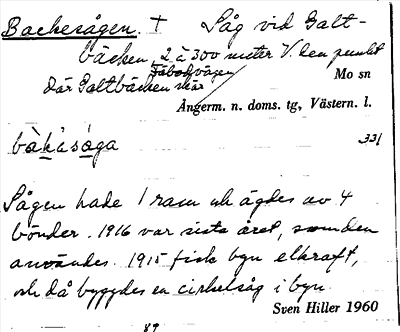 Backesågen. † Såg vid Galt-
bäcken, 2 à 300 meter V. den punkt
där Galtbäcken skär fäbodvägen
Mo sn
Ångerm. n. doms. tg, Västern. l.
bàkàsåga
331
Sågen hade 1 ram och ägdes av 4
bönder. 1916 var sista året, som den
användes. 1915 fick byn elkraft,
och då byggdes en cirkelsåg i byn.
Sven Hiller 1960